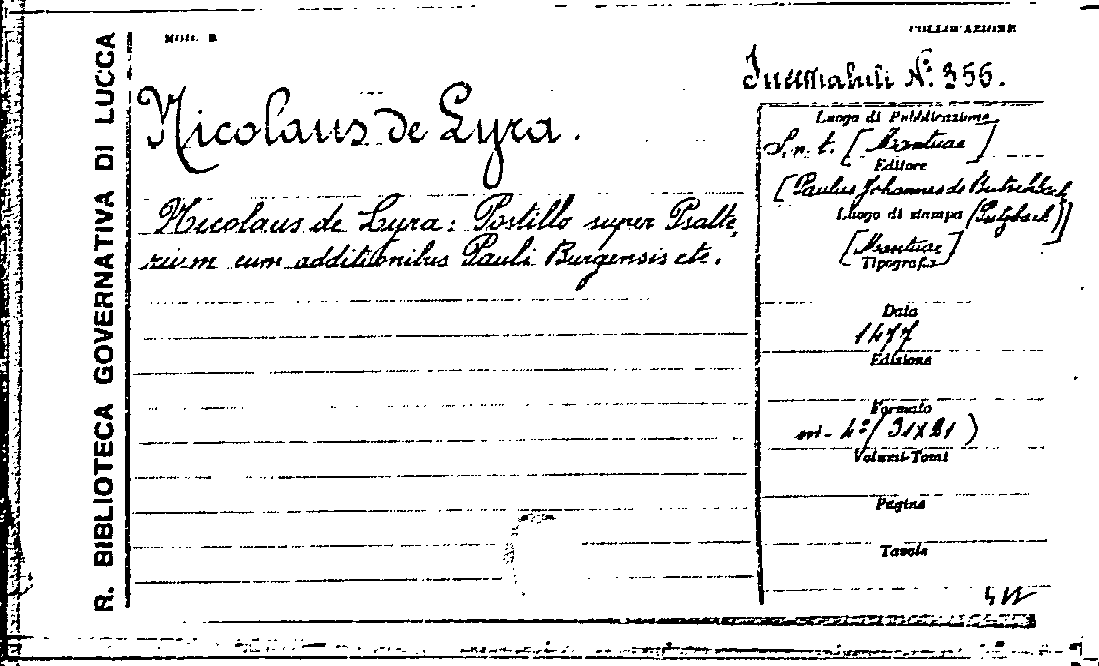 MOD. B
COLLOCAZIONE
R. BIBLIOTECA GOVERNATIVA DI LUCCA
Incunabuli N.º 356.
Nicolaus de Lyra.
Nicolaus de Lyra: Postillo super Psalte,
rium cum additionibus Pauli Burgensis etc.
Luogo di Pubblicazione
S. n. t. [Mantuae]
Editore
[Paulus Johannes de Butschbach
Luogo di stampa (Puzbach)]
[Mantuae]
Tipografia
Data
1477
Edizione
Formato
in-4º (31x21)
Volumi-Tomi
Pagine
Tavole